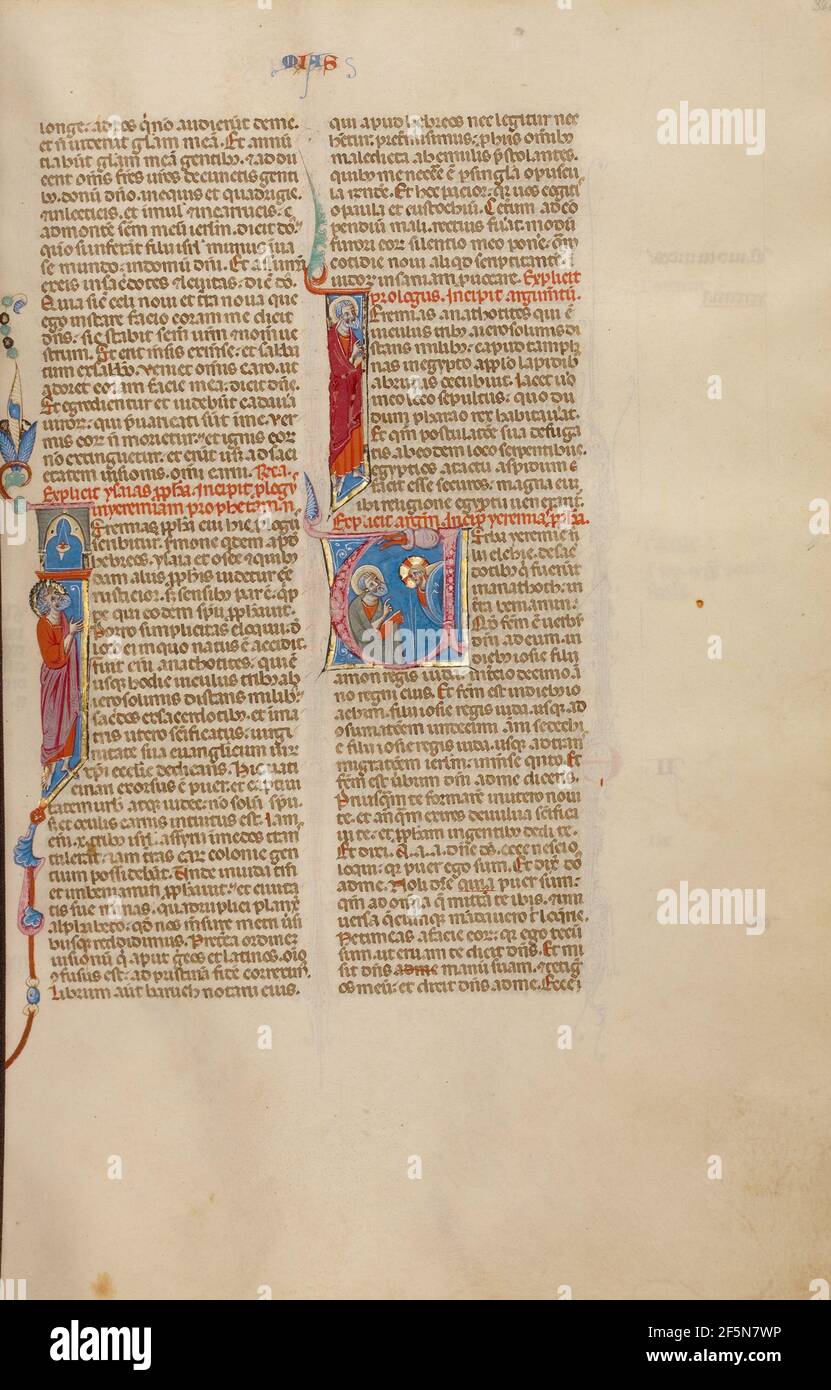 longe. ad eos qui no audierut de me.
et n uiderunt gliam mea. Et annu
tiabut gliam mea gentibus. et addu
cent oms fres uros de cunctis genti
bus. donu dno. in equis et quadrigis.
et in lecticis. et in mulis et in carrucis.
ad monte scm meu ierlm. dicit dns.
quo si inferant filii isrl munus in ua
se mundo. in domu dni. Et assumam
ex eis in sacdotes et leuitas. dic dns.
Quia sic celi noui et tra noua que
ego instare facio coram me dicit
dns. sic stabit sem urm et nom ue
strum. Et erit mensis ex mense. et sabba
tum ex sabbo. Veniet omnis caro. ut
adoret coram facie mea. dicit dns.
Et egredientur et uidebut cadauera
uiror. qui puaricati sut in me. Ver
mis eor n morietur. et ignis eor
no extinguetur. et erunt usq ad saci
etatem uisionis. omi carni.
Explicit ysaias ppha. Incipit plogus
in yeremiam prophetam
Ieremias ppha cui hic plogus
scribitur. smone qdem apd
hebreos. ysaia et osee et quibus
dam aliis pphis uidetur ee
rusticior. s. sensibus par e. qp
pe qui eodem spu pphauit.
Porro simplicitas eloquii. d
loco ei in quo natus e accidit.
fuit eni anathotites. qui e
usq hodie uiculus tribus ab
ierosolimis distans milibus.
sacdos ex sacerdotibus. et in ma
tris utero scificatus. uirgi
nitate sua euanglicum uir
xpi ecclie dedicans. Hic uati
cinari exorsus e puer. et captiui
tatem urbis atq iudee. no solu spu.
s. et oculis carnis intuitus est. Iam
eni .x. tribus isrl. assyrii in medos tran
tulerat. iam tras ear colonie gen
tium possidebat. Unde in iuda tm
et in beniamin pphauit. et ciuita
tis sue ruinas. quadruplici planxit
alphabeto. qd nos mesure metri usi
busq reddidimus. Preterea ordinem
uisionu q aput grecos et latinos. oio
9fusus est. ad pustina fide correxim.
Librum aut baruch notarii eius.
qui apud hebreos nec legitur nec
hetur. ptermisimus. p hiis omibus
maledicta ab emulis pstolantes.
quibus me necesse e p singla opuscu
la rndere. Et hec pacior. qr uos cogitis
o paula et eustochiu. Cetrum ad co
pendiu mali. rectius fuat. modu
furori eor silentio meo pone. qm
cotidie noui aliqd scriptitantem.
iuidor insaniam puocare. Explicit
prologus. Incipit argumtu.
Ieremias anathotites qui e
uiculus tribus a ierosolimis di
stans milibus. caput tamph
nas in egypto a pplo lapidibus
obrutus occubuit. Iacet uo
in eo loco sepultus. quo du
dum pharao rex habitauit.
Et qm postulate sua defuga
tis ab eodem loco serpentibus.
egyptios a tactu aspidium
facit esse securos. magna eu
ibi religione egyptii uenerant.
Explicit argm. Incip yeremias ppha.
Uerba yeremie fi
lii elchie. de sac
dotibus q fuerut
in anathoth. in
tra beniamin.
Qd fcm e uerbm
dni ad eum. in
diebus iosie filii
amon regis iuda. in tcio decimo a
no regni eius. Et fcm est in diebus io
achim. filii iosie regis iuda. usq ad
9sumatoem undecim. ani sedechi
e filii iosie regis iuda. usq ad tran
migratoem ierlm. in mse quito. Et
fcm est ubum dni ad me dicens.
Priusqm te formare in utero noui
te. et anqm exires de uulua scifica
ui te. et ppham in gentibus dedi te.
Et dixi. A. a. a. dne ds. ecce nescio
loqui. qr puer ego sum. Et dix dns
ad me. Noli dce quia puer sum.
qm ad omia q mitta te ibis. et uni
uersa qcunq madauero t loqris.
Ne timeas a facie eor. qr ego tecu
sum. ut eruam te dicit dns. Et mi
sit dns manu suam. et tetig
os meu. et dixit dns ad me. Ecce
alamy
Image ID: 2F5N7WP
www.alamy.com